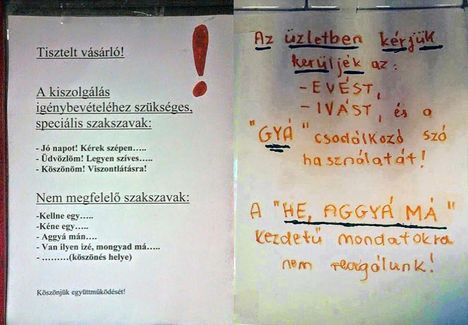 Tisztelt vásárló!
A kiszolgálás
igénybevételéhez szükséges,
speciális szakszavak:
- Jó napot! Kérek szépen…..
- Üdvözlöm! Legyen szíves…..
- Köszönöm! Viszontlátásra!
Nem megfelelő szakszavak:
-Kellne egy…..
-Kéne egy…..
- Aggyá mán….
- Van ilyen izé, mongyad má…..
- ………(köszönés helye)
Köszönjük együttműködését!
!
Az üzletben kérjük
kerüljék az:
- EVÉST,
- IVÁST, és a
"GYÁ" csodálkozó szó
használatát!
A "HE, AGGYÁ MÁ"
kezdetű mondatokra
nem reagálunk!